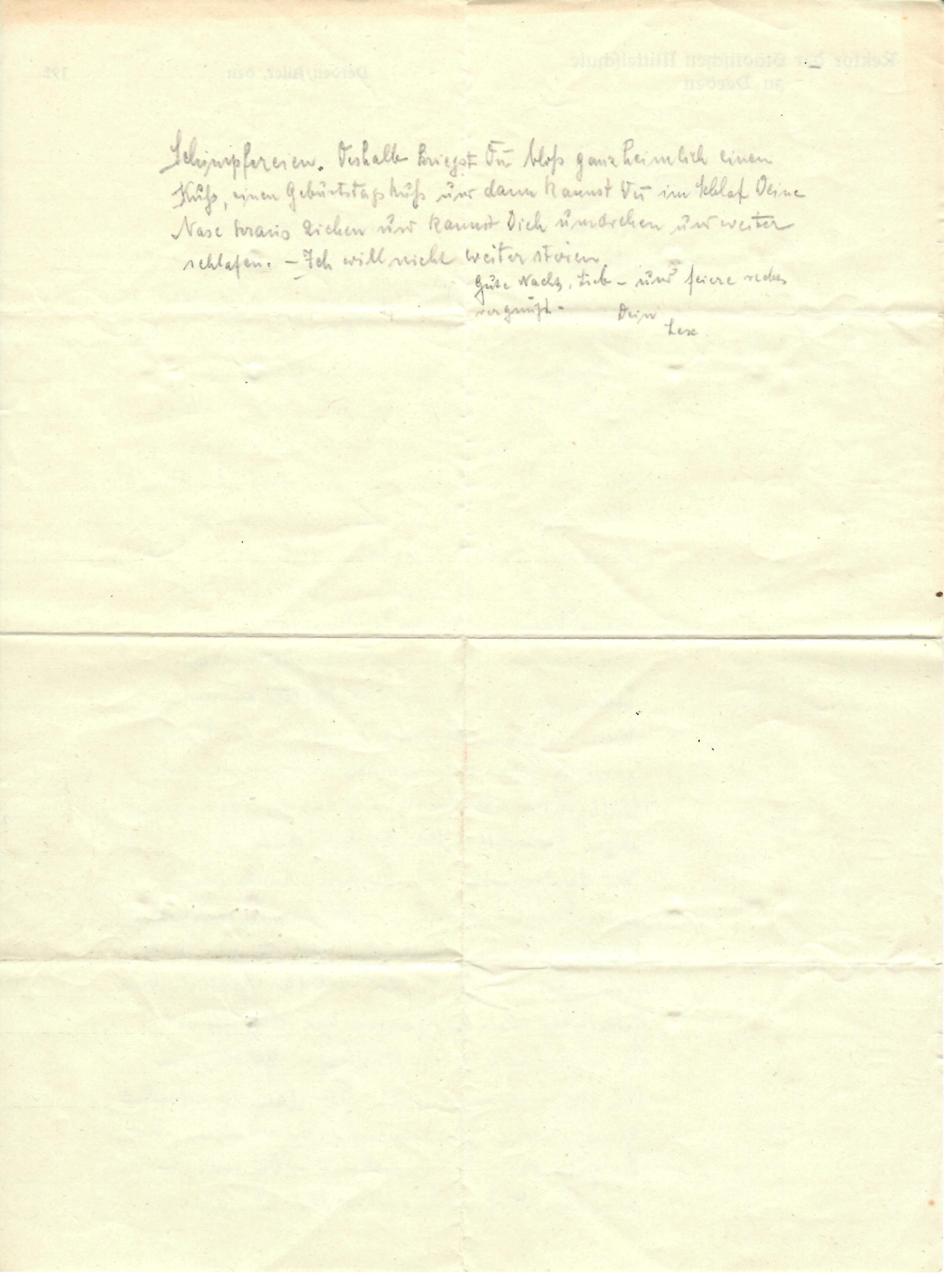 Schimpfereien. Deshalb kriegst Du bloß ganz heimlich einen
Kuß, einen Geburtstagskuß und dann kannst Du im Schlaf Deine
Nase kraus ziehen und kannst Dich umdrehen und weiter
schlafen. – Ich will nicht weiter stören.
Gute Nacht, Lieb – und feiere recht
vergnügt.
Dein
Rektor der Staatlichen Mittelschule
zu Verden
Verden/Aller, den 192